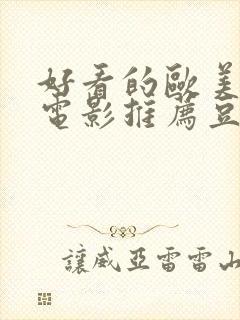 好看的欧美
電影推薦豆
讓威亞雷雷山